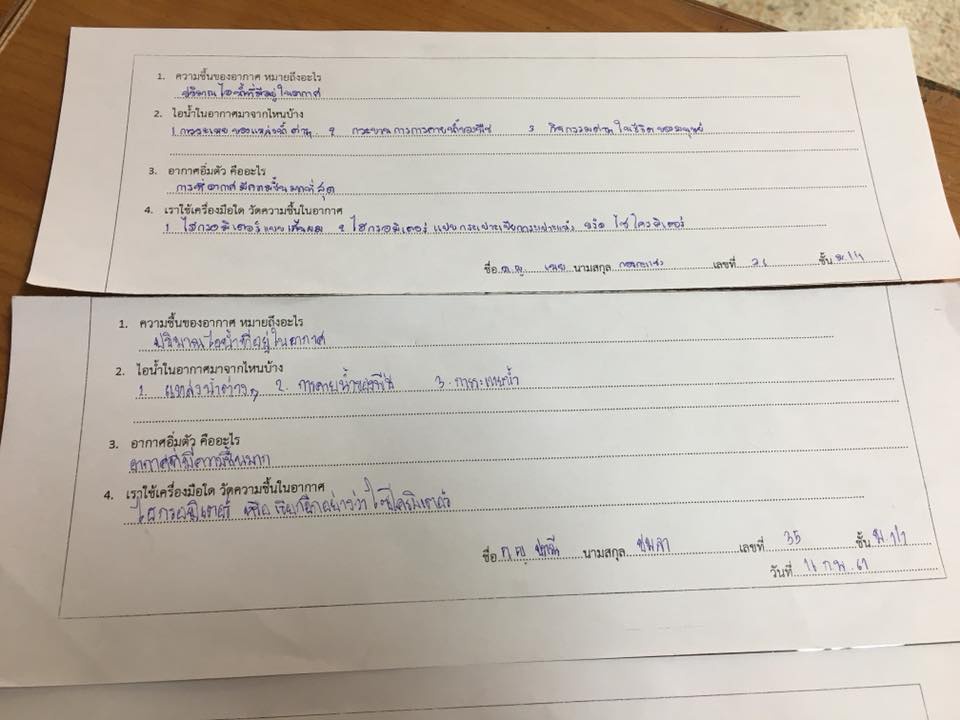 1. ความชื้นของอากาศ หมายถึงอะไร
ปริมาณไอน้ำที่มีอยู่ในอากาศ
2. ไอน้ำในอากาศมาจากไหนบ้าง
1. การระเหยของแหล่งน้ำต่างๆ 2 กระบวนการการคายน้ำของพืช 3 กิจกรรมต่างๆ ในชีวิตของมนุษย์
3. อากาศอิ่มตัว คืออะไร
การที่อากาศมีความชื้นมากที่สุด
4. เราใช้เครื่องมือใด วัดความชื้นในอากาศ
1 ไฮกรอมิเตอร์แบบเส้นผม 2 ไฮกรอมิเตอร์ แบบกระเปาะเปียกกระเปาะแห้ง หรือ ไซโครมิเตอร์
ชื่อ ด.ญ. นามสกุล เลขที่ ชั้น
1. ความชื้นของอากาศ หมายถึงอะไร
ปริมาณไอน้ำที่อยู่ในอากาศ
2. ไอน้ำในอากาศมาจากไหนบ้าง
1. แหล่งน้ำต่างๆ 2. การคายน้ำของพืช 3. การระเหยน้ำ
3. อากาศอิ่มตัว คืออะไร
อากาศที่มีความชื้นมาก
4. เราใช้เครื่องมือใด วัดความชื้นในอากาศ
ไฮกรอมิเตอร์ หรือ เรียกอีกอย่างว่า ไซโครมิเตอร์
ชื่อ นามสกุล ชมลา เลขที่ 35 ชั้น
วันที่ 16 ก.พ. 61